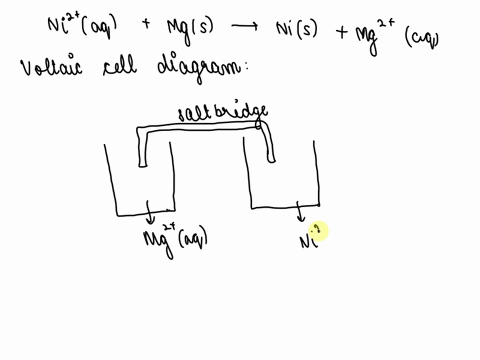 Ni²⁺(aq) + Mg(s) → Ni(s) + Mg²⁺(aq)
Voltaic cell diagram:
salt bridge
Mg²⁺(aq)
Ni²